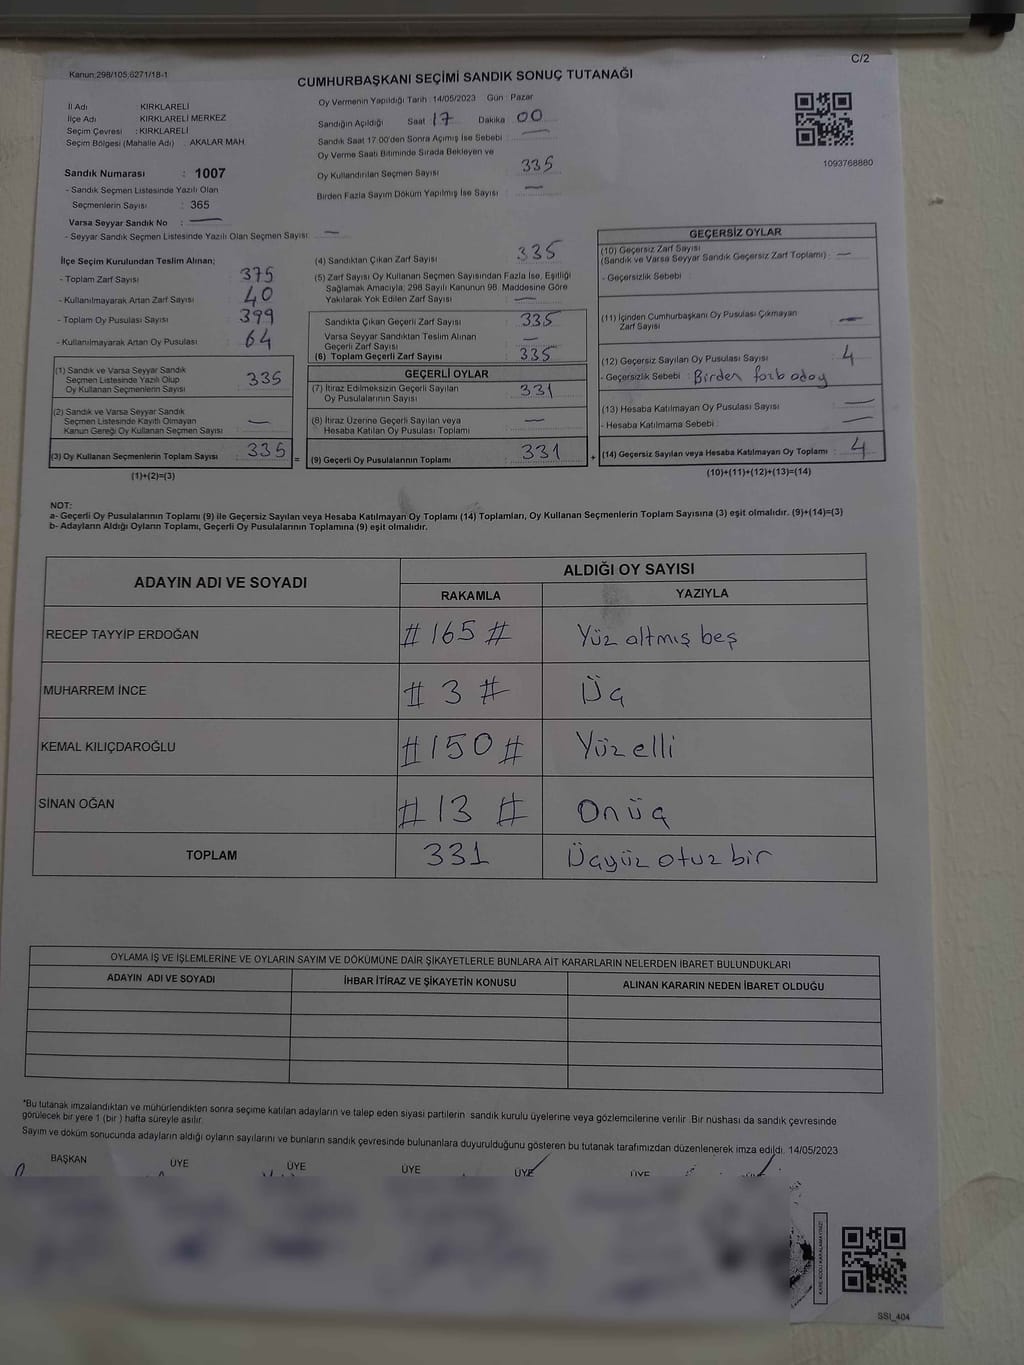 C/2
Kanun:298/105;6271/18-1
CUMHURBAŞKANI SEÇİMİ SANDIK SONUÇ TUTANAĞI
İl Adı : KIRKLARELİ
İlçe Adı : KIRKLARELİ MERKEZ
Seçim Çevresi : KIRKLARELİ
Seçim Bölgesi (Mahalle Adı) : AKALAR MAH.
Sandık Numarası : 1007
- Sandık Seçmen Listesinde Yazılı Olan
Seçmenlerin Sayısı : 365
Varsa Seyyar Sandık No : —
- Seyyar Sandık Seçmen Listesinde Yazılı Olan Seçmen Sayısı: —
Oy Vermenin Yapıldığı Tarih : 14/05/2023 Gün : Pazar
Sandığın Açıldığı Saat 17 Dakika 00
Sandık Saat 17.00'den Sonra Açımış İse Sebebi : —
Oy Verme Saati Bitiminde Sırada Bekleyen ve
Oy Kullandırılan Seçmen Sayısı 335
Birden Fazla Sayım Döküm Yapılmış İse Sayısı : —
1093768880
İlçe Seçim Kurulundan Teslim Alınan;
- Toplam Zarf Sayısı : 375
- Kullanılmayarak Artan Zarf Sayısı : 40
- Toplam Oy Pusulası Sayısı : 399
- Kullanılmayarak Artan Oy Pusulası : 64
(1) Sandık ve Varsa Seyyar Sandık
Seçmen Listesinde Yazılı Olup
Oy Kullanan Seçmenlerin Sayısı : 335
(2) Sandık ve Varsa Seyyar Sandık
Seçmen Listesinde Kayıtlı Olmayan
Kanun Gereği Oy Kullanan Seçmen Sayısı : —
(3) Oy Kullanan Seçmenlerin Toplam Sayısı : 335 =
(1)+(2)=(3)
(4) Sandıktan Çıkan Zarf Sayısı : 335
(5) Zarf Sayısı Oy Kullanan Seçmen Sayısından Fazla İse, Eşitliği
Sağlamak Amacıyla; 298 Sayılı Kanunun 98. Maddesine Göre
Yakılarak Yok Edilen Zarf Sayısı : —
Sandıkta Çıkan Geçerli Zarf Sayısı : 335
Varsa Seyyar Sandıktan Teslim Alınan
Geçerli Zarf Sayısı : —
(6) Toplam Geçerli Zarf Sayısı : 335
GEÇERLİ OYLAR
(7) İtiraz Edilmeksizin Geçerli Sayılan
Oy Pusulalarının Sayısı : 331
(8) İtiraz Üzerine Geçerli Sayılan veya
Hesaba Katılan Oy Pusulası Toplamı : —
(9) Geçerli Oy Pusulalarının Toplamı : 331 +
GEÇERSİZ OYLAR
(10) Geçersiz Zarf Sayısı
(Sandık ve Varsa Seyyar Sandık Geçersiz Zarf Toplamı) : —
- Geçersizlik Sebebi :
(11) İçinden Cumhurbaşkanı Oy Pusulası Çıkmayan
Zarf Sayısı : —
(12) Geçersiz Sayılan Oy Pusulası Sayısı : 4
- Geçersizlik Sebebi : Birden
(13) Hesaba Katılmayan Oy Pusulası Sayısı : —
- Hesaba Katılmama Sebebi : —
(14) Geçersiz Sayılan veya Hesaba Katılmayan Oy Toplamı : 4
(10)+(11)+(12)+(13)=(14)
NOT:
a- Geçerli Oy Pusulalarının Toplamı (9) ile Geçersiz Sayılan veya Hesaba Katılmayan Oy Toplamı (14) Toplamları, Oy Kullanan Seçmenlerin Toplam Sayısına (3) eşit olmalıdır. (9)+(14)=(3)
b- Adayların Aldığı Oyların Toplamı, Geçerli Oy Pusulalarının Toplamına (9) eşit olmalıdır.
ADAYIN ADI VE SOYADI
ALDIĞI OY SAYISI
RAKAMLA YAZIYLA
RECEP TAYYİP ERDOĞAN # 165 # Yüz altmış beş
MUHARREM İNCE # 3 # Üç
KEMAL KILIÇDAROĞLU # 150 # Yüz elli
SİNAN OĞAN # 13 # Onüç
TOPLAM 331 Üçyüz otuz bir
OYLAMA İŞ VE İŞLEMLERİNE VE OYLARIN SAYIM VE DÖKÜMÜNE DAİR ŞİKAYETLERLE BUNLARA AİT KARARLARIN NELERDEN İBARET BULUNDUKLARI
ADAYIN ADI VE SOYADI İHBAR İTİRAZ VE ŞİKAYETİN KONUSU ALINAN KARARIN NEDEN İBARET OLDUĞU
*Bu tutanak imzalandıktan ve mühürlendikten sonra seçime katılan adayların ve talep eden siyasi partilerin sandık kurulu üyelerine veya gözlemcilerine verilir. Bir nüshası da sandık çevresinde
görülecek bir yere 1 (bir) hafta süreyle asılır.
Sayım ve döküm sonucunda adayların aldığı oyların sayılarını ve bunların sandık çevresinde bulunanlara duyurulduğunu gösteren bu tutanak tarafımızdan düzenlenerek imza edildi. 14/05/2023
BAŞKAN ÜYE ÜYE ÜYE ÜYE ÜYE
KARE KODU KARALAMAYINIZ!
SSI_404